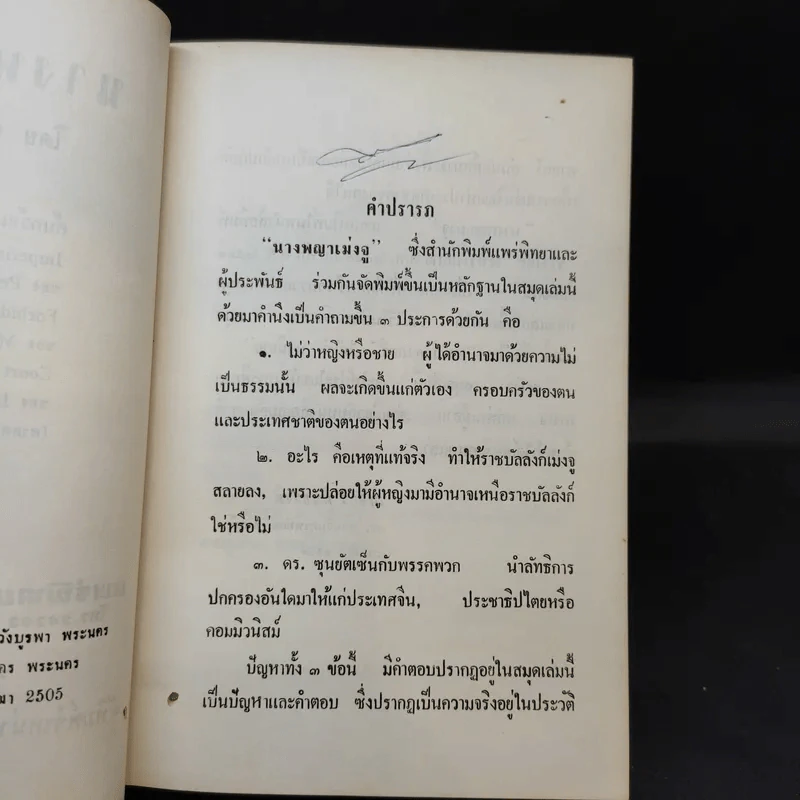 คำปรารภ
“นางพญาเม่งจู” ซึ่งสำนักพิมพ์แพร่พิทยาและ
ผู้ประพันธ์ ร่วมกันจัดพิมพ์ขึ้นเป็นหลักฐานในสมุดเล่มนี้
ด้วยมาคำนึงเป็นคำถามขึ้น ๓ ประการด้วยกัน คือ
๑. ไม่ว่าหญิงหรือชาย ผู้ได้อำนาจมาด้วยความไม่
เป็นธรรมนั้น ผลจะเกิดขึ้นแก่ตัวเอง ครอบครัวของตน
และประเทศชาติของตนอย่างไร
๒. อะไร คือเหตุที่แท้จริง ทำให้ราชบัลลังก์เม่งจู
สลายลง, เพราะปล่อยให้ผู้หญิงมามีอำนาจเหนือราชบัลลังก์
ใช่หรือไม่
๓. ดร. ซุนยัตเซ็นกับพรรคพวก นำลัทธิการ
ปกครองอันใดมาให้แก่ประเทศจีน, ประชาธิปไตยหรือ
คอมมิวนิสม์
ปัญหาทั้ง ๓ ข้อนี้ มีคำตอบปรากฏอยู่ในสมุดเล่มนี้
เป็นปัญหาและคำตอบ ซึ่งปรากฏเป็นความจริงอยู่ในประวัติ
โดย
วังบูรพา พระนคร
พระนคร
2505